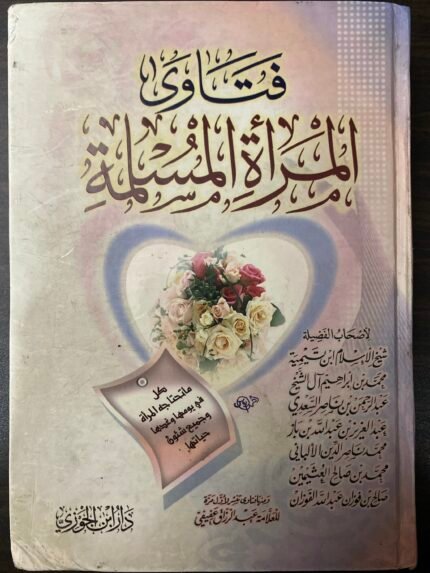 فتاوى
المرأة المسلمة
لأصحاب الفضيلة
شيخ الإسلام ابن تيمية
محمد بن إبراهيم آل الشيخ
عبد الرحمن بن ناصر السعدي
عبد العزيز بن عبد الله بن باز
محمد ناصر الدين الألباني
محمد بن صالح العثيمين
صالح بن فوزان عبد الله الفوزان
كل
ما تحتاجه المرأة
في يومها وغدها
وجميع شئون
حياتها
وفتاوى تنشر لأول مرة
للعلامة عبد الرزاق عفيفي
دار ابن الجوزي